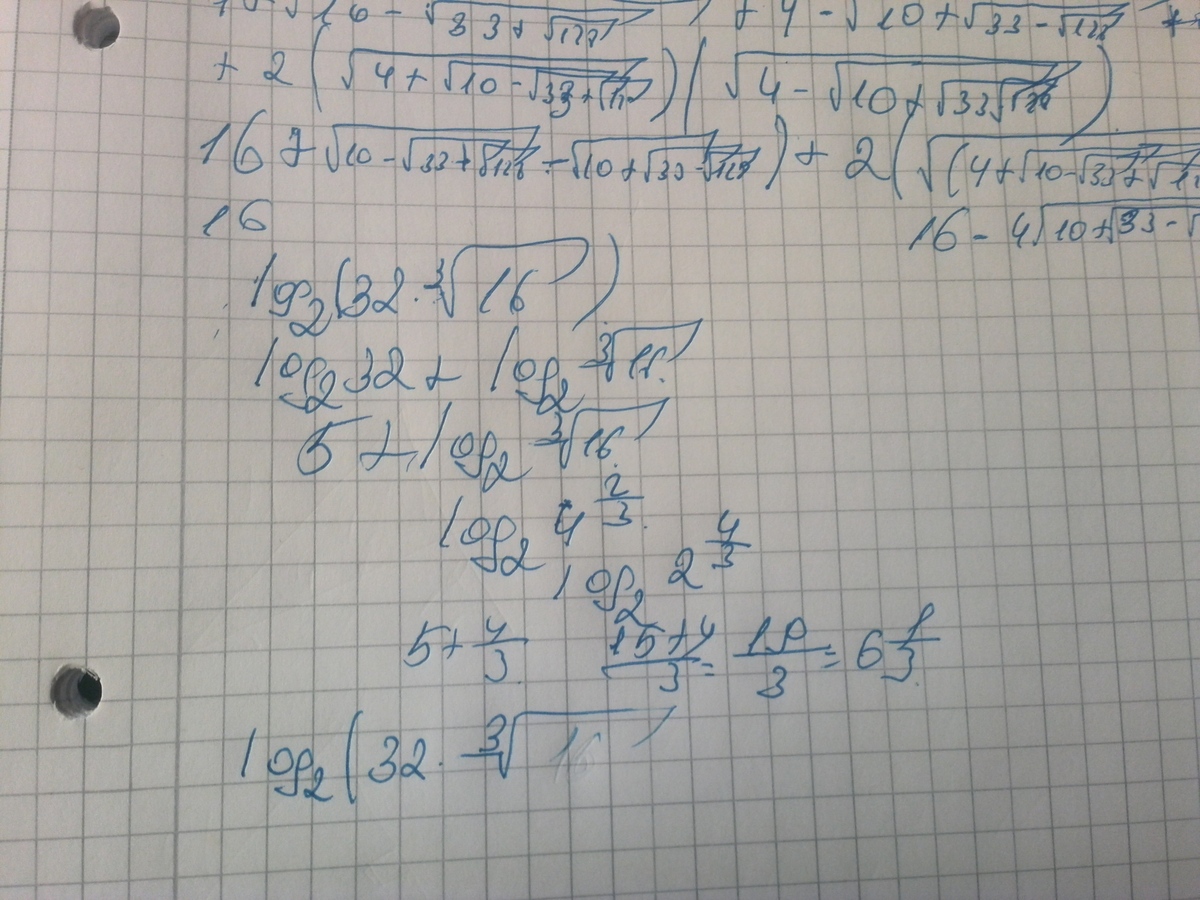 + 4 - √10 + √33 - √128
+ 2 (√4 + √10 - √33 + √12) (√4 - √10 + √33
16 + √10 - √33 + √128 - √10 + √33 - √128) + 2 (√(4 + √10 - √33 + √12
16 16 - 4√10 + √33 - √
log₂(32 · ∛16)
log₂32 + log₂ ∛16
5 + log₂ ∛16
log₂ 4^(2/3)
log₂ 2^(4/3)
5 + 4/3 (15+4)/3 = 19/3 = 6 1/3
log₂(32 · ∛16